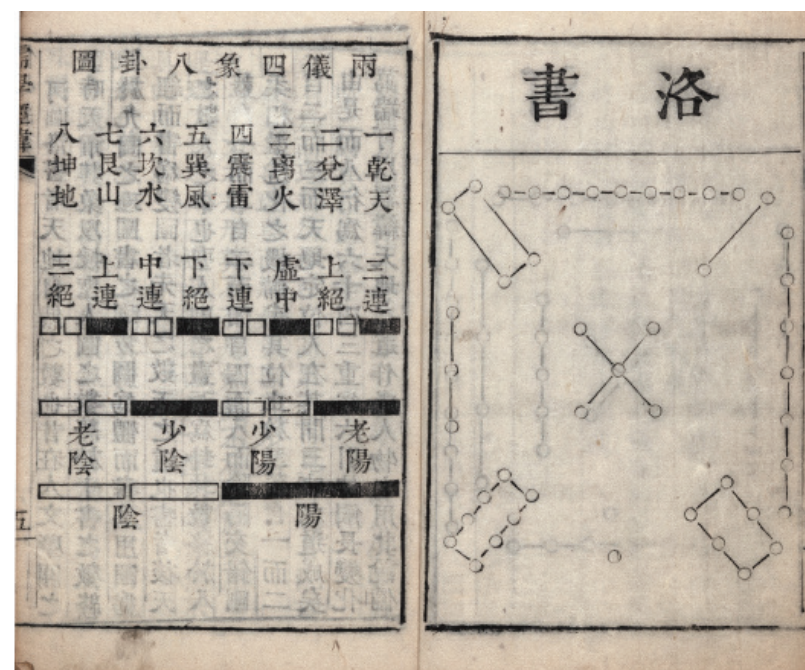 洛書
兩儀四象八卦圖
一乾天 三連
二兌澤 上絕
三離火 虛中
四震雷 下連
五巽風 下絕
六坎水 中連
七艮山 上連
八坤地 三絕
老陽
少陽
少陰
老陰
陽
陰
五